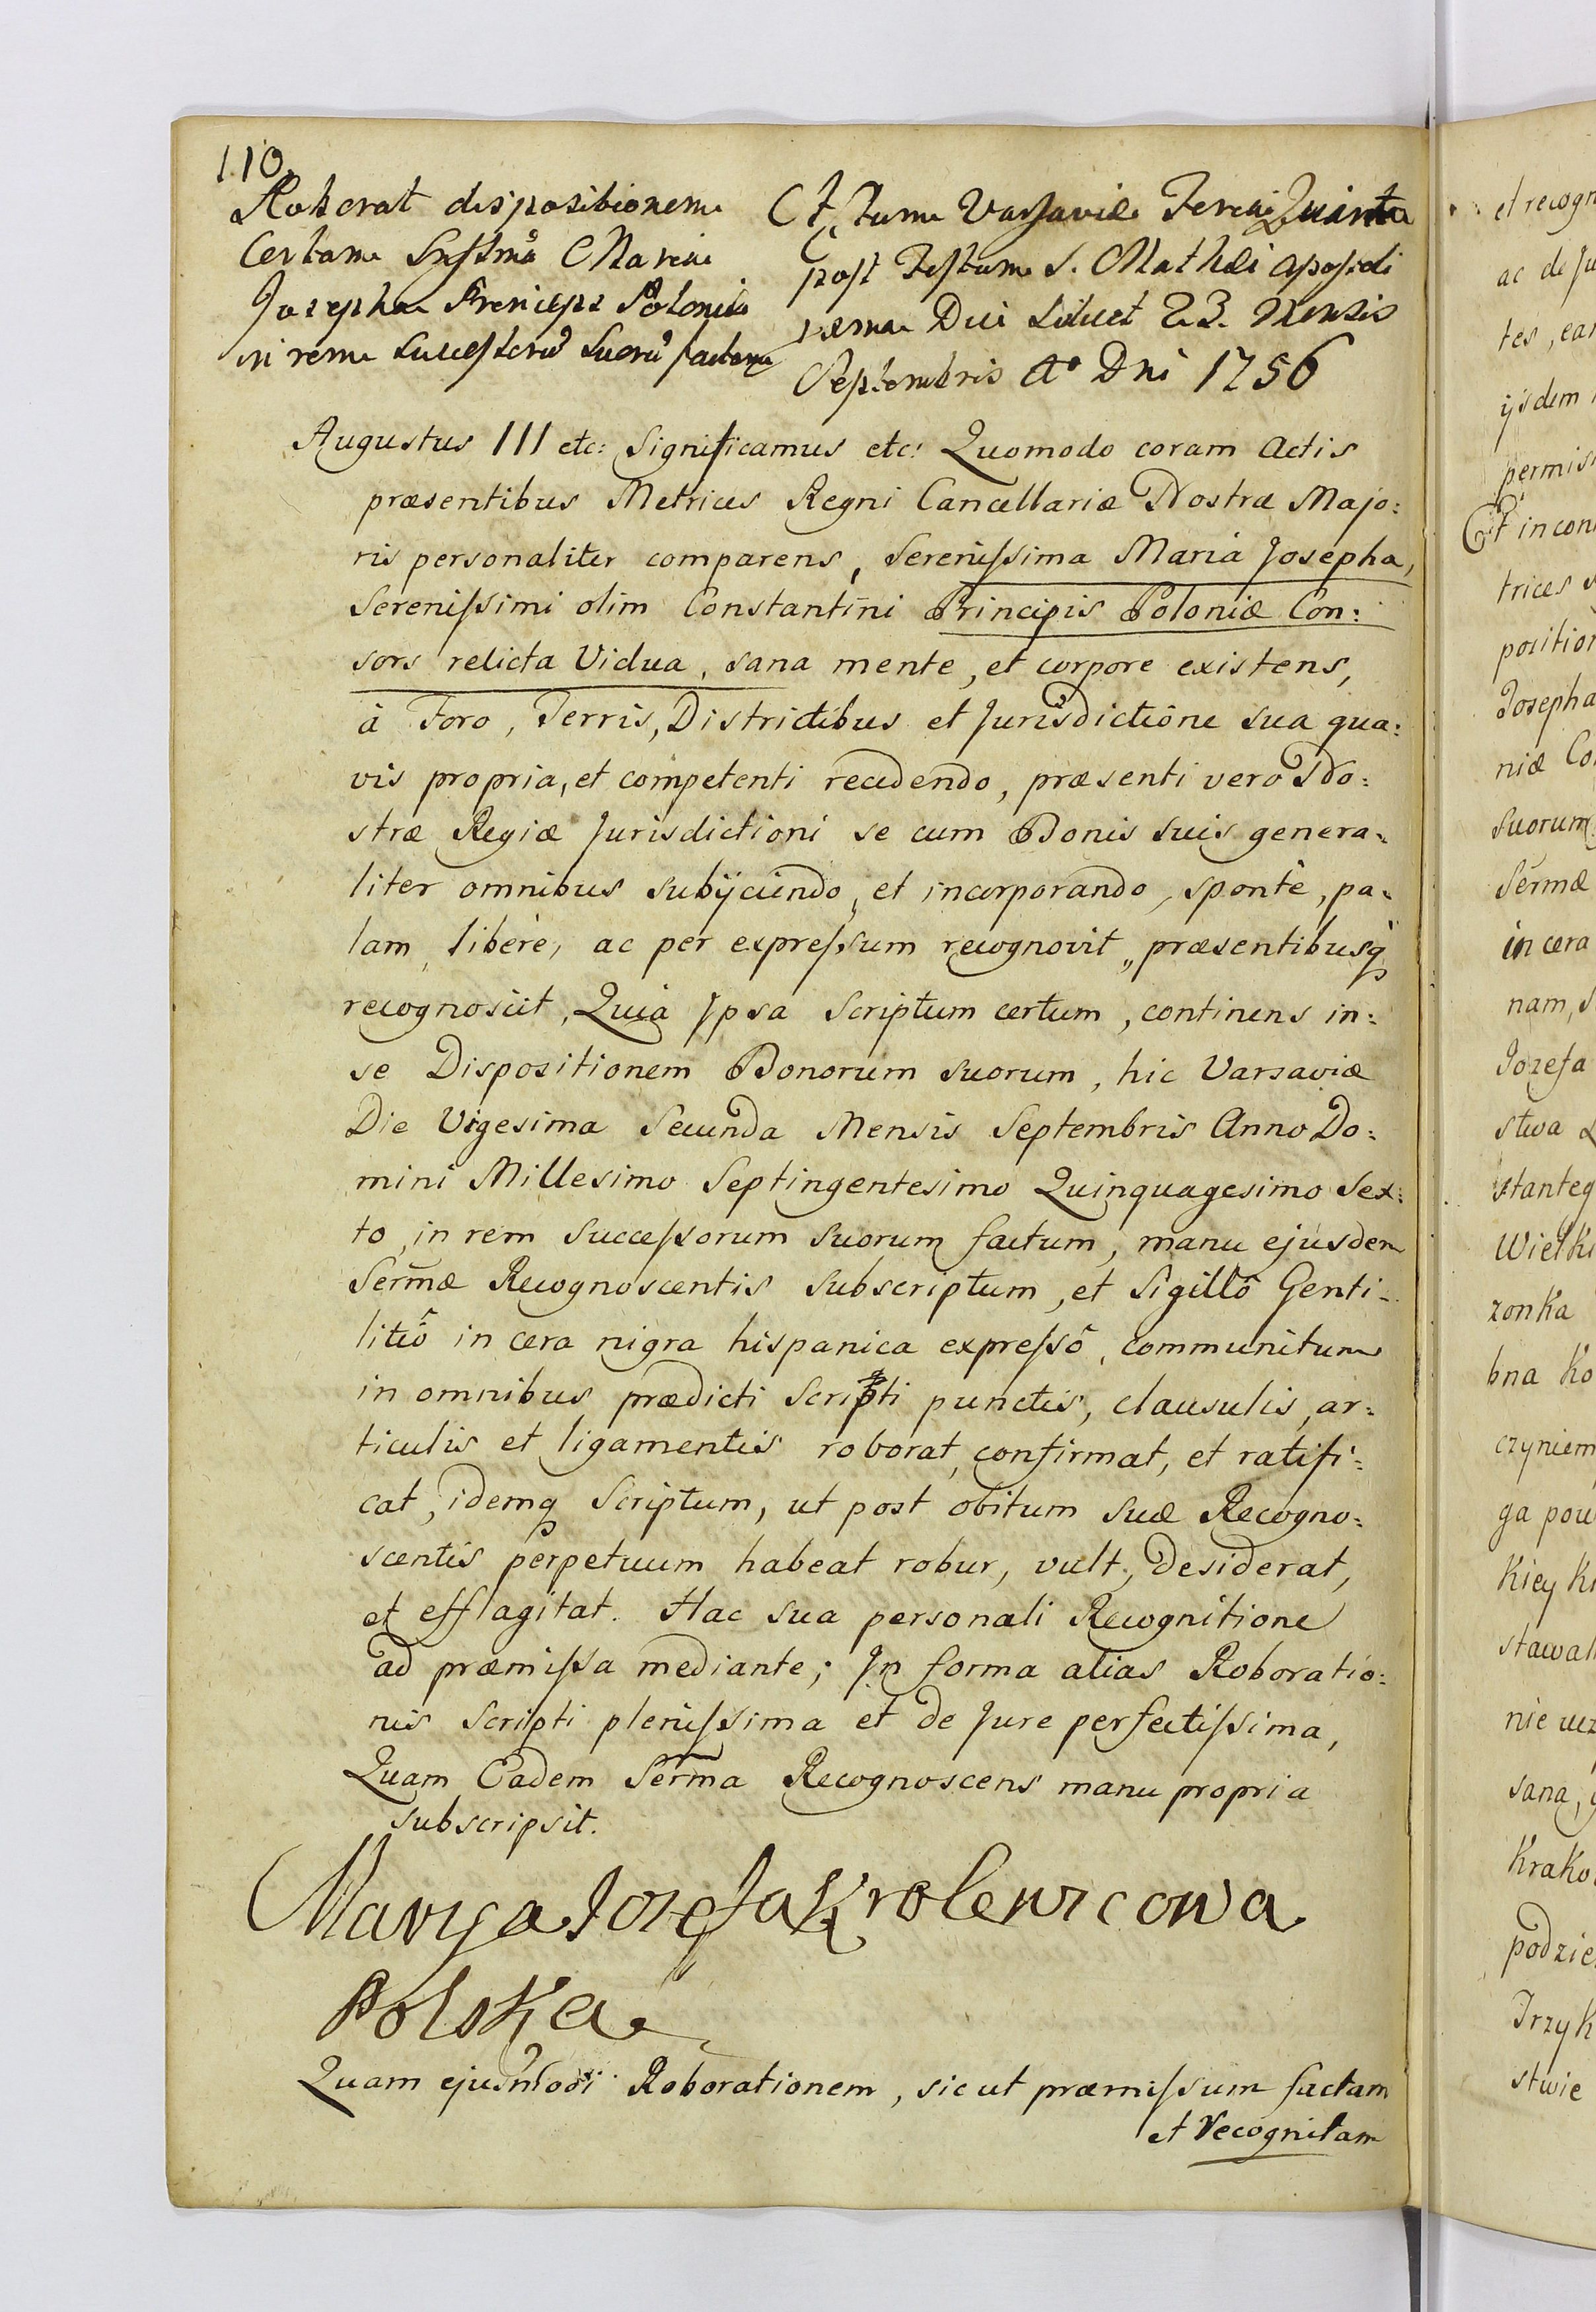 110.
Roborat dispositionem
Certam Srssma Maria
Josepha Princeps Poloniæ
in rem Successorũ Suorũ factam
Actum Varsaviæ Feria Quinta
post Festum S. Mathæi Apostoli
nema Die scilicet 23. Mensis
Septembris Ao Dni 1756
Augustus III etc: Significamus etc: Quomodo coram Actis
præsentibus Metrices Regni Cancellariæ Nostræ Majo:
ris personaliter comparens, Serenissima Maria Josepha,
Serenissimi olim Constantini Principis Poloniæ Con:
sors relicta Vidua, sana mente, et corpore existens,
à Foro, Terris, Districtibus et Jurisdictione sua qua:
vis propria, et competenti recedendo, præsenti vero No:
stræ Regiæ Jurisdictioni se cum Bonis suis genera:
liter omnibus subijciendo, et incorporando, sponte, pa:
lam, liberè, ac per expressum recognovit, præsentibusq
recognoscit, Quia Ipsa Scriptum certum, continens in:
se Dispositionem Bonorum suorum, hic Varsaviæ
Die Vigesima Secunda Mensis Septembris Anno Do:
mini Millesimo Septingentesimo Quinquagesimo Sex:
to, in rem Successorum suorum factum, manu ejusdem
Serm̃æ Recognoscentis subscriptum, et Sigillô Genti:
litiô in cera nigra hispanica expressô, communitum
in omnibus prædicti Scripti punctis, clausulis, ar:
ticulis et ligamentis roborat, confirmat, et ratifi:
cat, idemq Scriptum, ut post obitum suæ Recogno:
scentis perpetuum habeat robur, vult, desiderat,
et efflagitat. Hac sua personali Recognitione
ad præmissa mediante; In forma alias Roboratio:
nis Scripti plenissima et de Jure perfectissima,
Quam Eadem Serm̃a Recognoscens manu propria
subscripsit.
Marya Jozefa Krolewicowa
Polska
Quam ejusmodi Roborationem, sicut præmissum factam
et recognitam
et recogn
ac de Ju
tes, ean
ijsdem
permis
Et incon
trices s
position
Josepha
niæ Co
suorum
Serm̃æ
in cera
nam, s
Jozefa
stwa
stanteg
Wielki
zonka
bna Ko
czyniem
ga pow
Kiey K
stawal
nie ucz
sana,
Krako
podzie
Trzyk
stwie